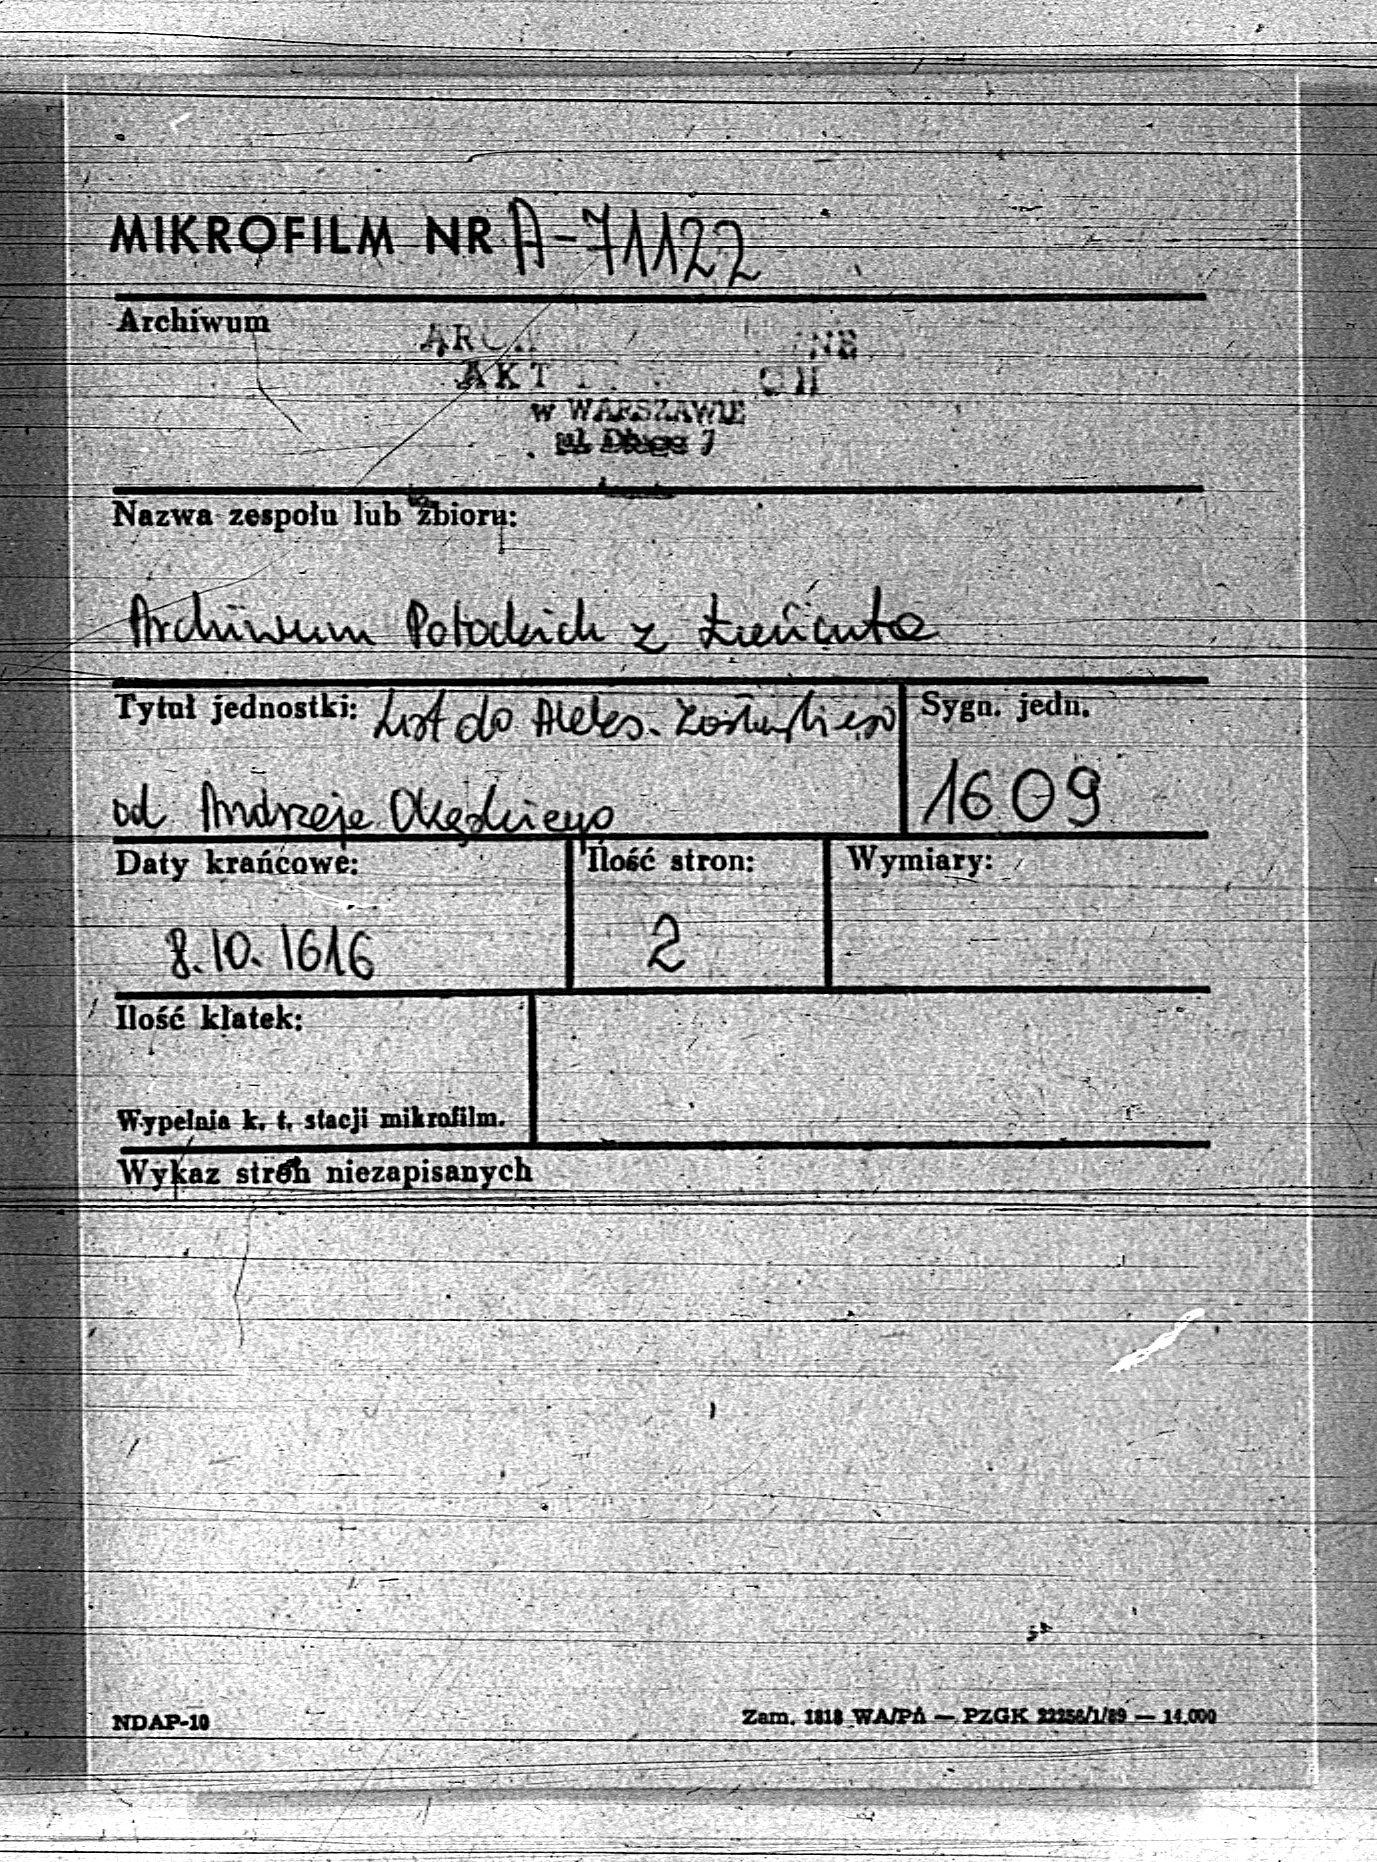 MIKROFILM NR A-71122
Archiwum
AKT
w WARSZAWIE
ul. Długa 7
Nazwa zespołu lub zbioru:
Archiwum Potockich z Łańcuta
Tytuł jednostki: List do Aleks. Sygn. jedn.
od Andrzeja Okęckiego 1609
Daty krańcowe: Ilość stron: Wymiary:
8.10.1616 2
Ilość klatek:
Wypełnia k. t. stacji mikrofilm.
Wykaz stron niezapisanych
NDAP-10 Zam. 1818 WA/PA — PZGK 22256/1/89 — 14.000